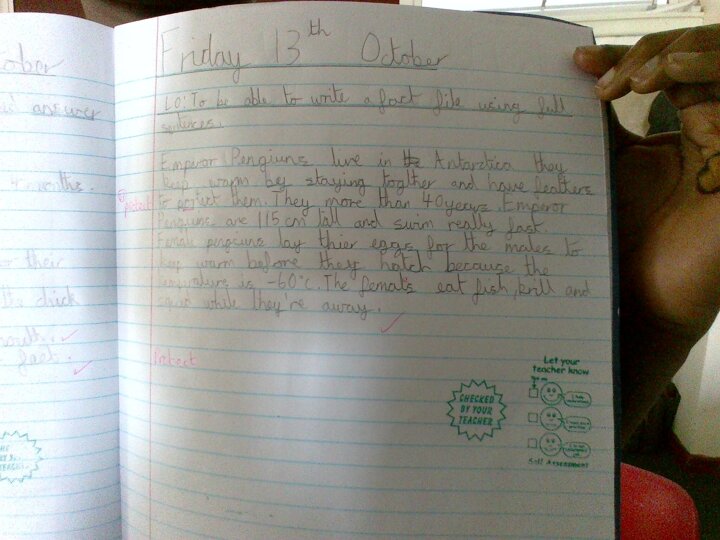 tober
answer
months.
their
the chick
fact.
Friday 13th October
LO: To be able to write a fact file using full
sentences.
Emperor Penguins live in the Antarztica they
keep warm bey staying togther and have feathers
protect
to protect them. They more than 40 years. Emperor
Penguins are 115cm tall and swim really fast.
Female penguins lay thier eggs for the males to
keep warm before they hatch because the
temperature is -60°c. The females eat fish, krill and
squid while they're away.
Protect
CHECKED
BY YOUR
TEACHER
Let your
teacher know
Self Assessment